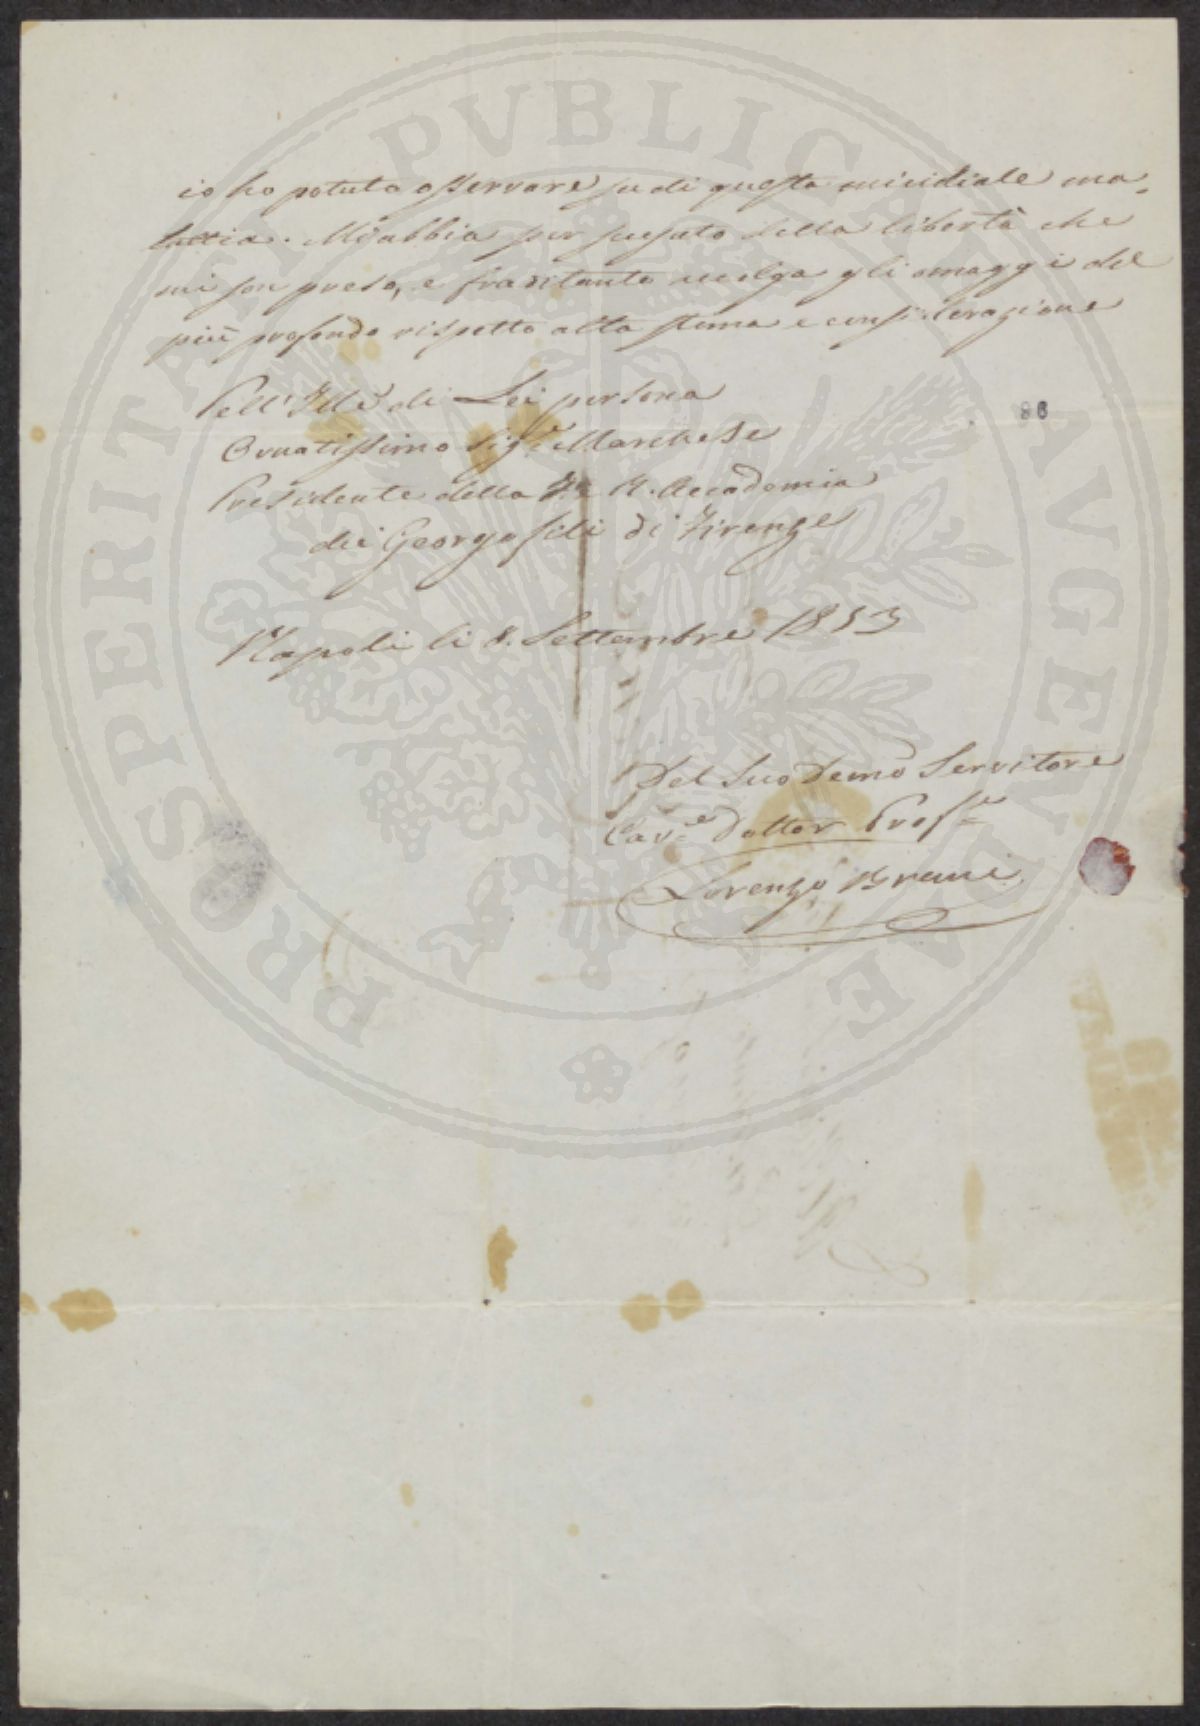 io ho potuto osservare su di questa micidiale ma-
lattia. Mi abbia per scusato della libertà che
mi son preso, e frattanto accolga gli omaggi del
più profondo rispetto alta stima e considerazione
Dell' Ill.e di Lei persona
Ornatissimo Sig.r Marchese
Presidente della I. e R. Accademia
dei Georgofili di Firenze
Napoli li 8. Settembre 1853
Del Suo Demo Servitore
Cav.re Dottor Prof.re
Lorenzo Bruni
86
PROSPERITATI PVBLICAE AVGENDAE